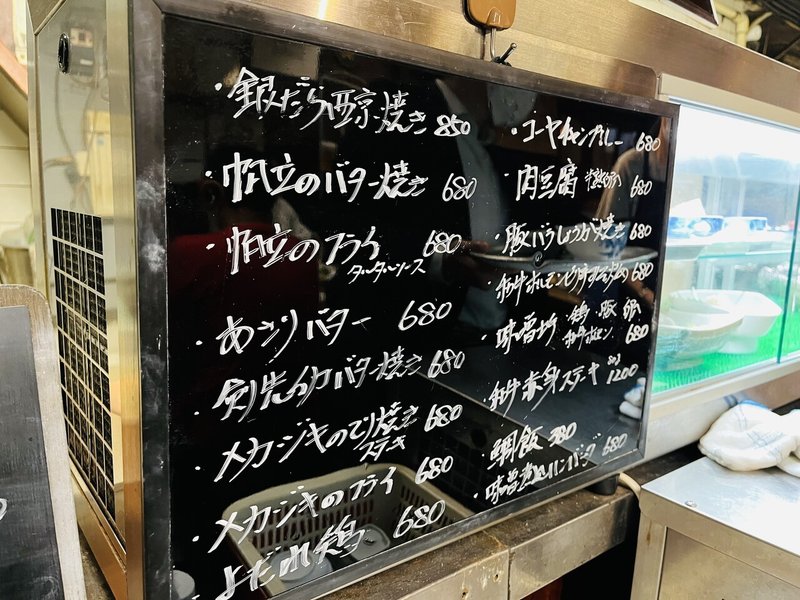 ・銀だら西京焼き 850
・帆立のバター焼き 680
・帆立のフライ 680
タルタルソース
・あさりバター 680
・剣先イカバター焼き 680
・メカジキのてり焼き 680
ステーキ
・メカジキのフライ 680
・よだれ鶏 680
・ゴーヤチャンプルー 680
・肉豆腐 680
・豚バラしょうが焼き 680
・和牛ホルモン 680
・味噌炒 鶏・豚 680
和牛ホルモン
・和牛赤身ステーキ 1200
・鯛飯 380
・味噌煮込ハンバーグ 680